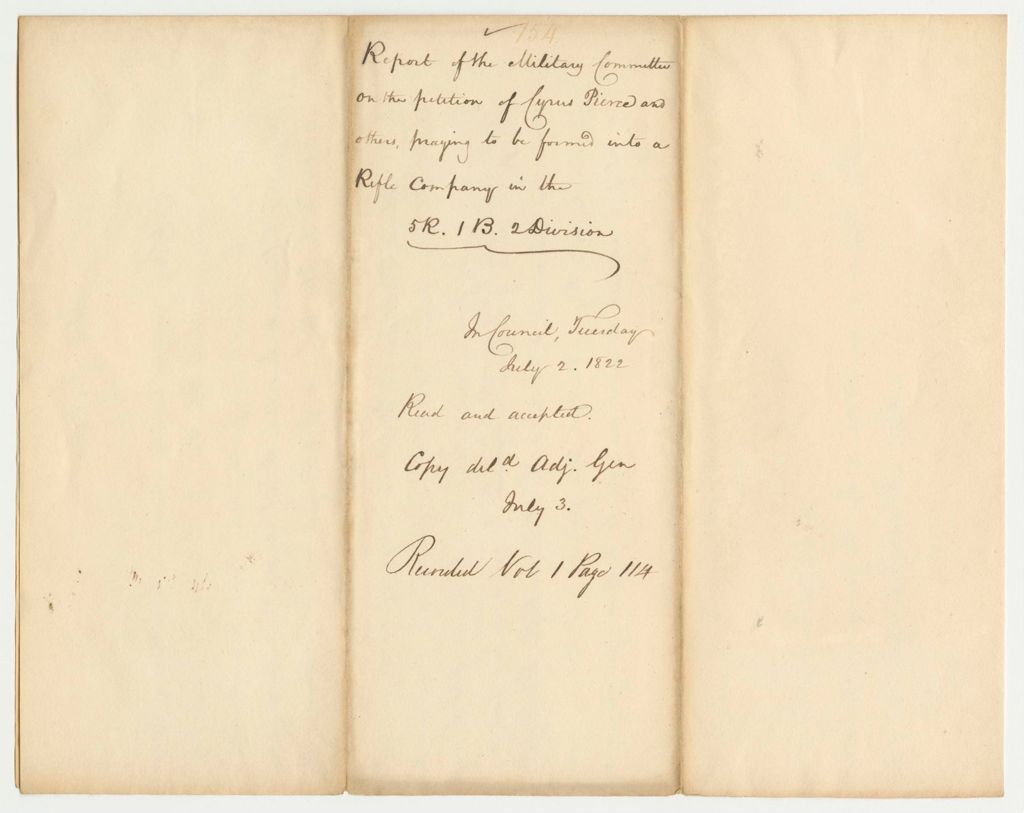 ✓ 154
Report of the Military Committee
on the petition of Cyrus Pierce and
others, praying to be formed into a
Rifle Company in the
5R. 1 B. 2 Division
In Council, Tuesday
July 2. 1822
Read and accepted.
Copy deld Adj. Gen
July 3.
Recorded Vol 1 Page 114